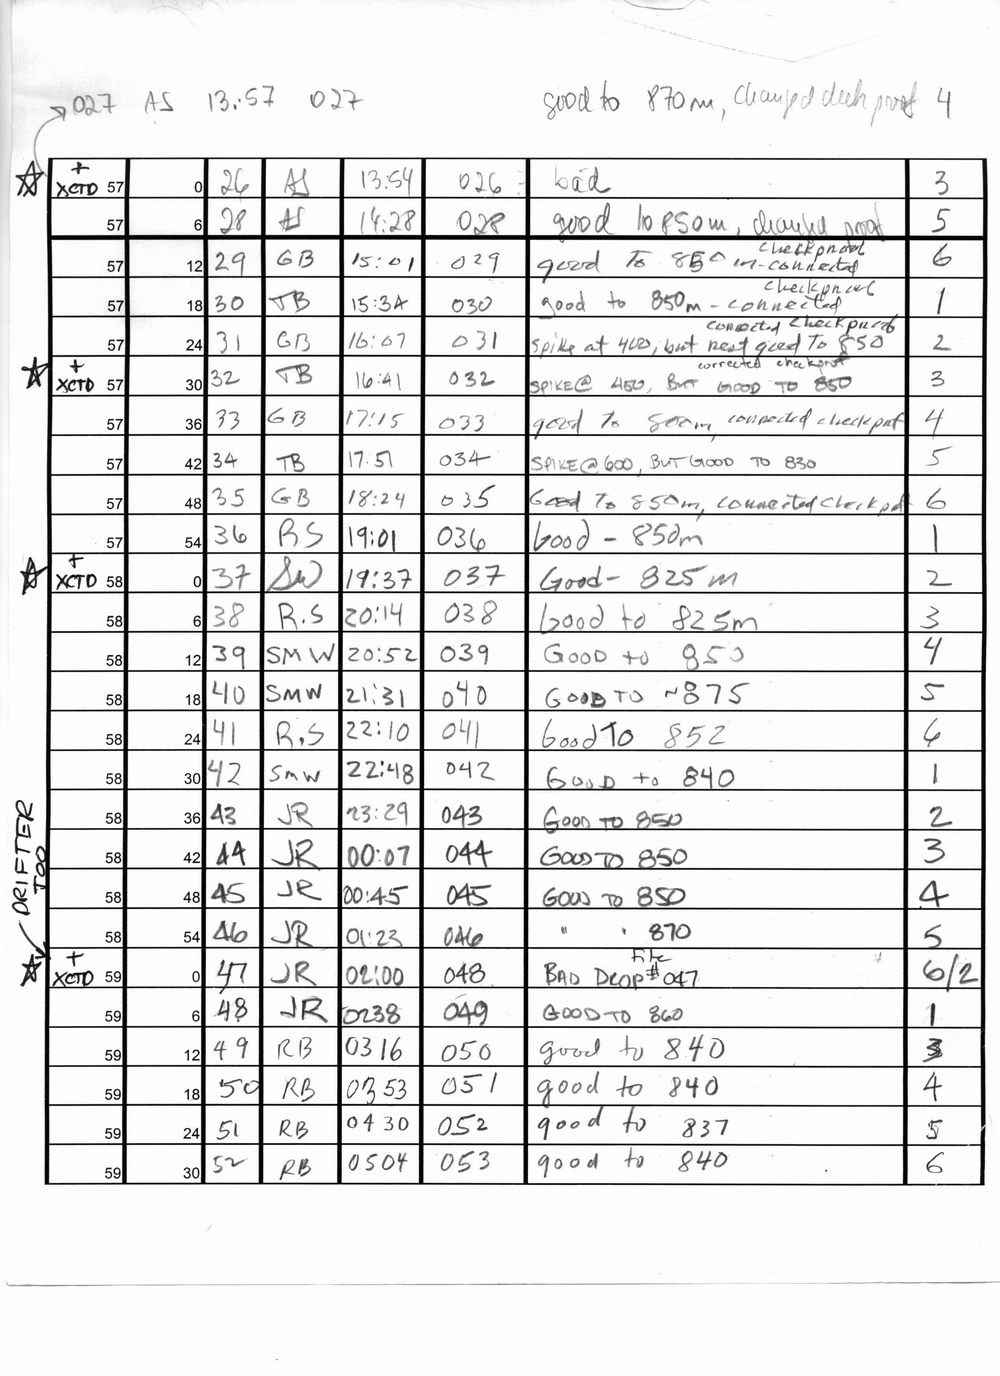 027 AS 13:57 027 good to 870m, changed deck proof 4
+ XCTD 57 0 26 AS 13:54 026 bad 3
57 6 28 AS 14:28 028 good to 850m, changed proof 5
57 12 29 GB 15:01 029 good To 850 m-connected checkproof 6
57 18 30 TB 15:34 030 good to 850m - connected checkproof 1
57 24 31 GB 16:07 031 spike at 400, but rest good To 850 connected checkproof 2
+ XCTD 57 30 32 TB 16:41 032 SPIKE@ 450, BUT GOOD TO 850 corrected checkproof 3
57 36 33 GB 17:15 033 good To 800m, connected checkprf 4
57 42 34 TB 17:51 034 SPIKE@600, BUT GOOD TO 830 5
57 48 35 GB 18:24 035 Good To 850m, connected checkprf 6
57 54 36 RS 19:01 036 Good - 850m 1
+ XCTD 58 0 37 SW 19:37 037 Good- 825m 2
58 6 38 R.S 20:14 038 Good to 825m 3
58 12 39 SMW 20:52 039 GOOD to 850 4
58 18 40 SMW 21:31 040 GOOD TO ~875 5
58 24 41 R.S 22:10 041 Good To 852 6
58 30 42 SMW 22:48 042 GOOD to 840 1
58 36 43 JR 23:29 043 GOOD TO 850 2
58 42 44 JR 00:07 044 GOOD TO 850 3
58 48 45 JR 00:45 045 GOOD TO 850 4
58 54 46 JR 01:23 046 " " 870 5
DRIFTER TOO
+ XCTD 59 0 47 JR 02:00 048 BAD DROP File #047 6/2
59 6 48 JR 0238 049 GOOD TO 860 1
59 12 49 RB 0316 050 good to 840 3
59 18 50 RB 0353 051 good to 840 4
59 24 51 RB 0430 052 good to 837 5
59 30 52 RB 0504 053 good to 840 6